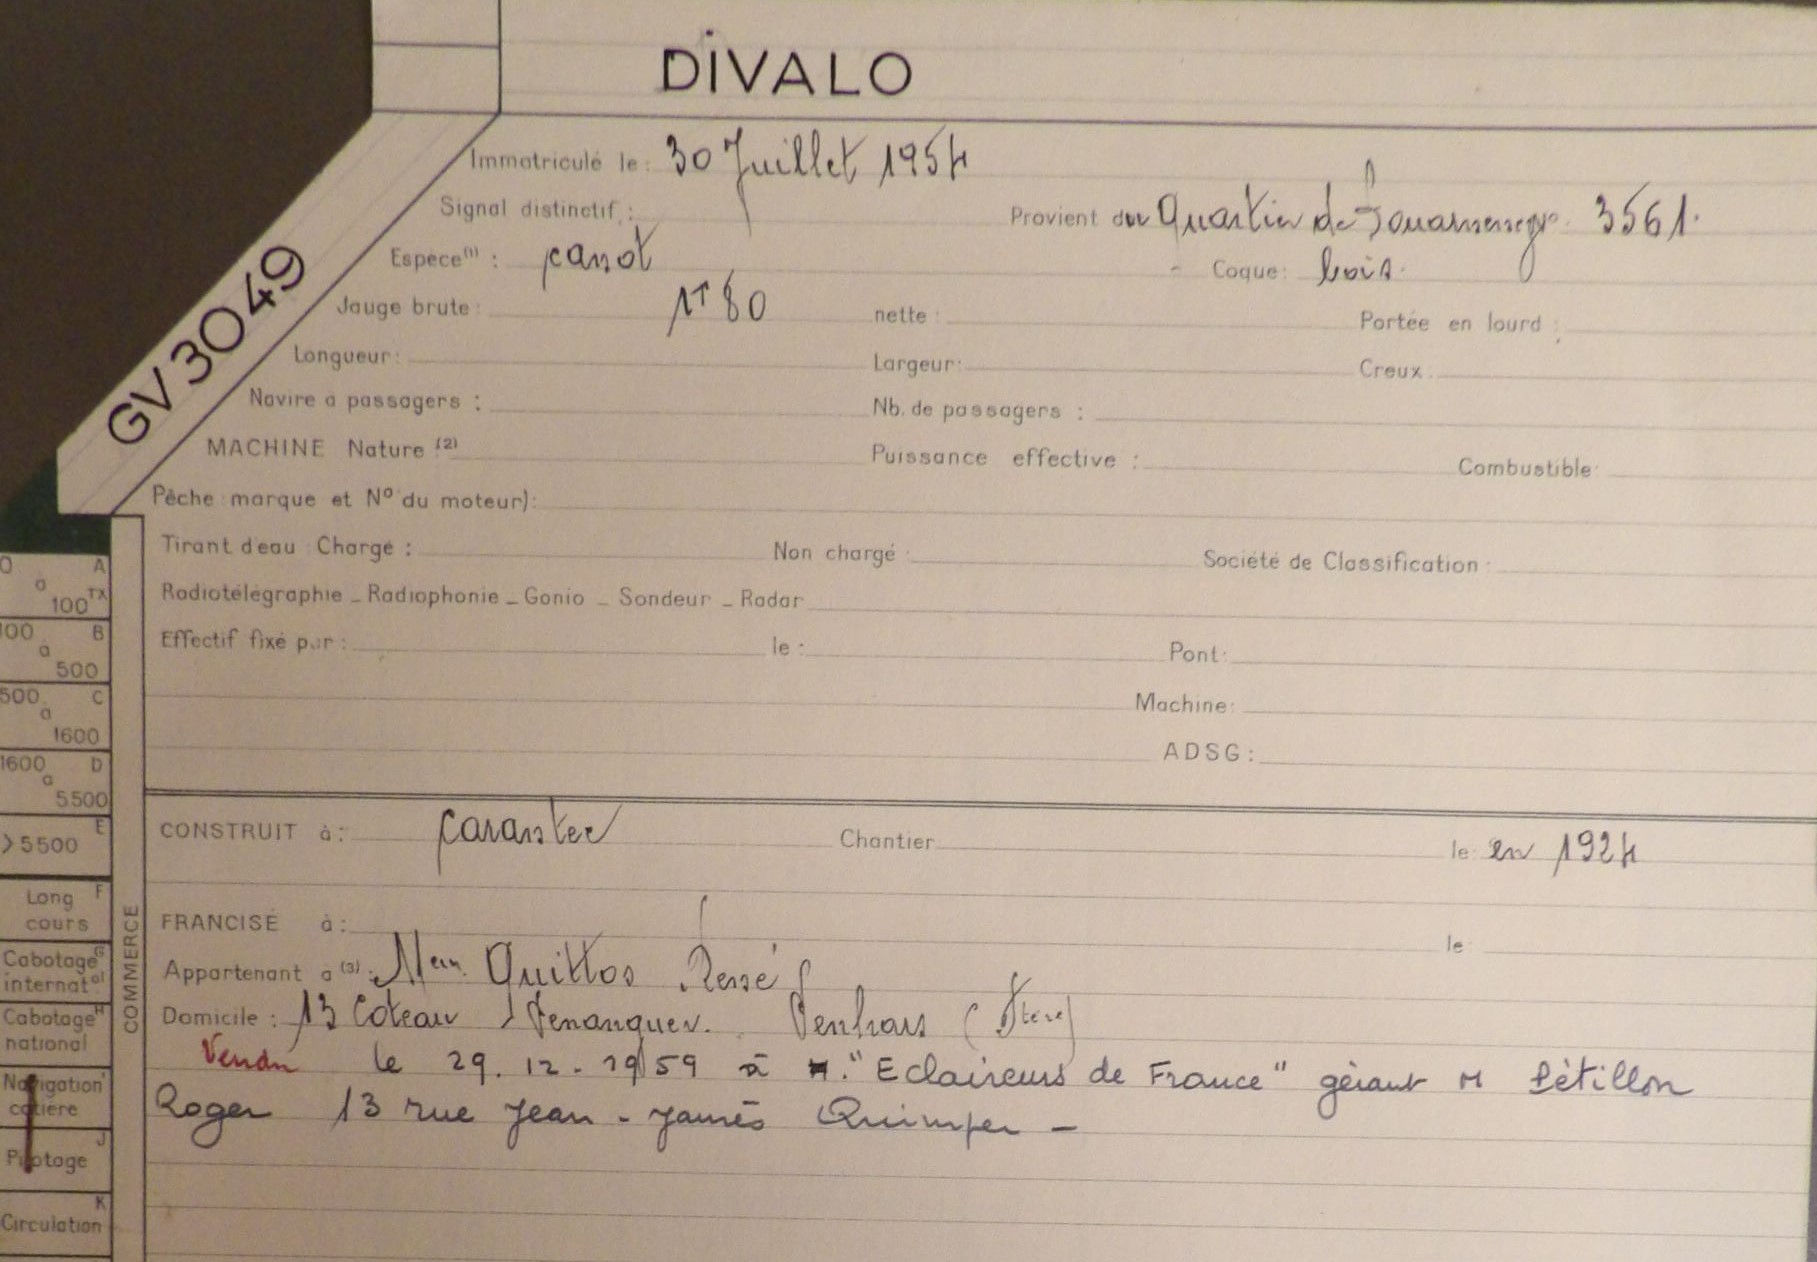 DIVALO
GV 3049
Immatriculé le: 30 Juillet 1954
Signal distinctif : Provient du Quartier de Douarnenez 3561.
Espèce(1) : canot - Coque: bois.
Jauge brute: 1T80 nette : Portée en lourd :
Longueur: Largeur: Creux:
Navire à passagers : Nb. de passagers :
MACHINE Nature (2) Puissance effective : Combustible:
Pêche marque et N° du moteur):
Tirant d'eau : Chargé : Non chargé : Société de Classification :
Radiotélégraphie _ Radiophonie _ Gonio _ Sondeur _ Radar
Effectif fixé par : le : Pont:
Machine:
ADSG:
CONSTRUIT à: Carantec Chantier le: en 1924
FRANCISÉ à: le:
Appartenant à (3): René
Domicile : 13 Coteau Penhars
Vendu le 29.12.1959 à "Eclaireurs de France" gérant M Pétillon
Roger 13 rue Jean-Jaurès Quimper -
0 A
à
100 TX
100 B
à
500
500 C
à
1600
1600 D
à
5500
E
>5500
Long F
cours
Cabotage G
internat al
Cabotage H
national
Navigation
cotière
J
Pilotage
K
Circulation
COMMERCE